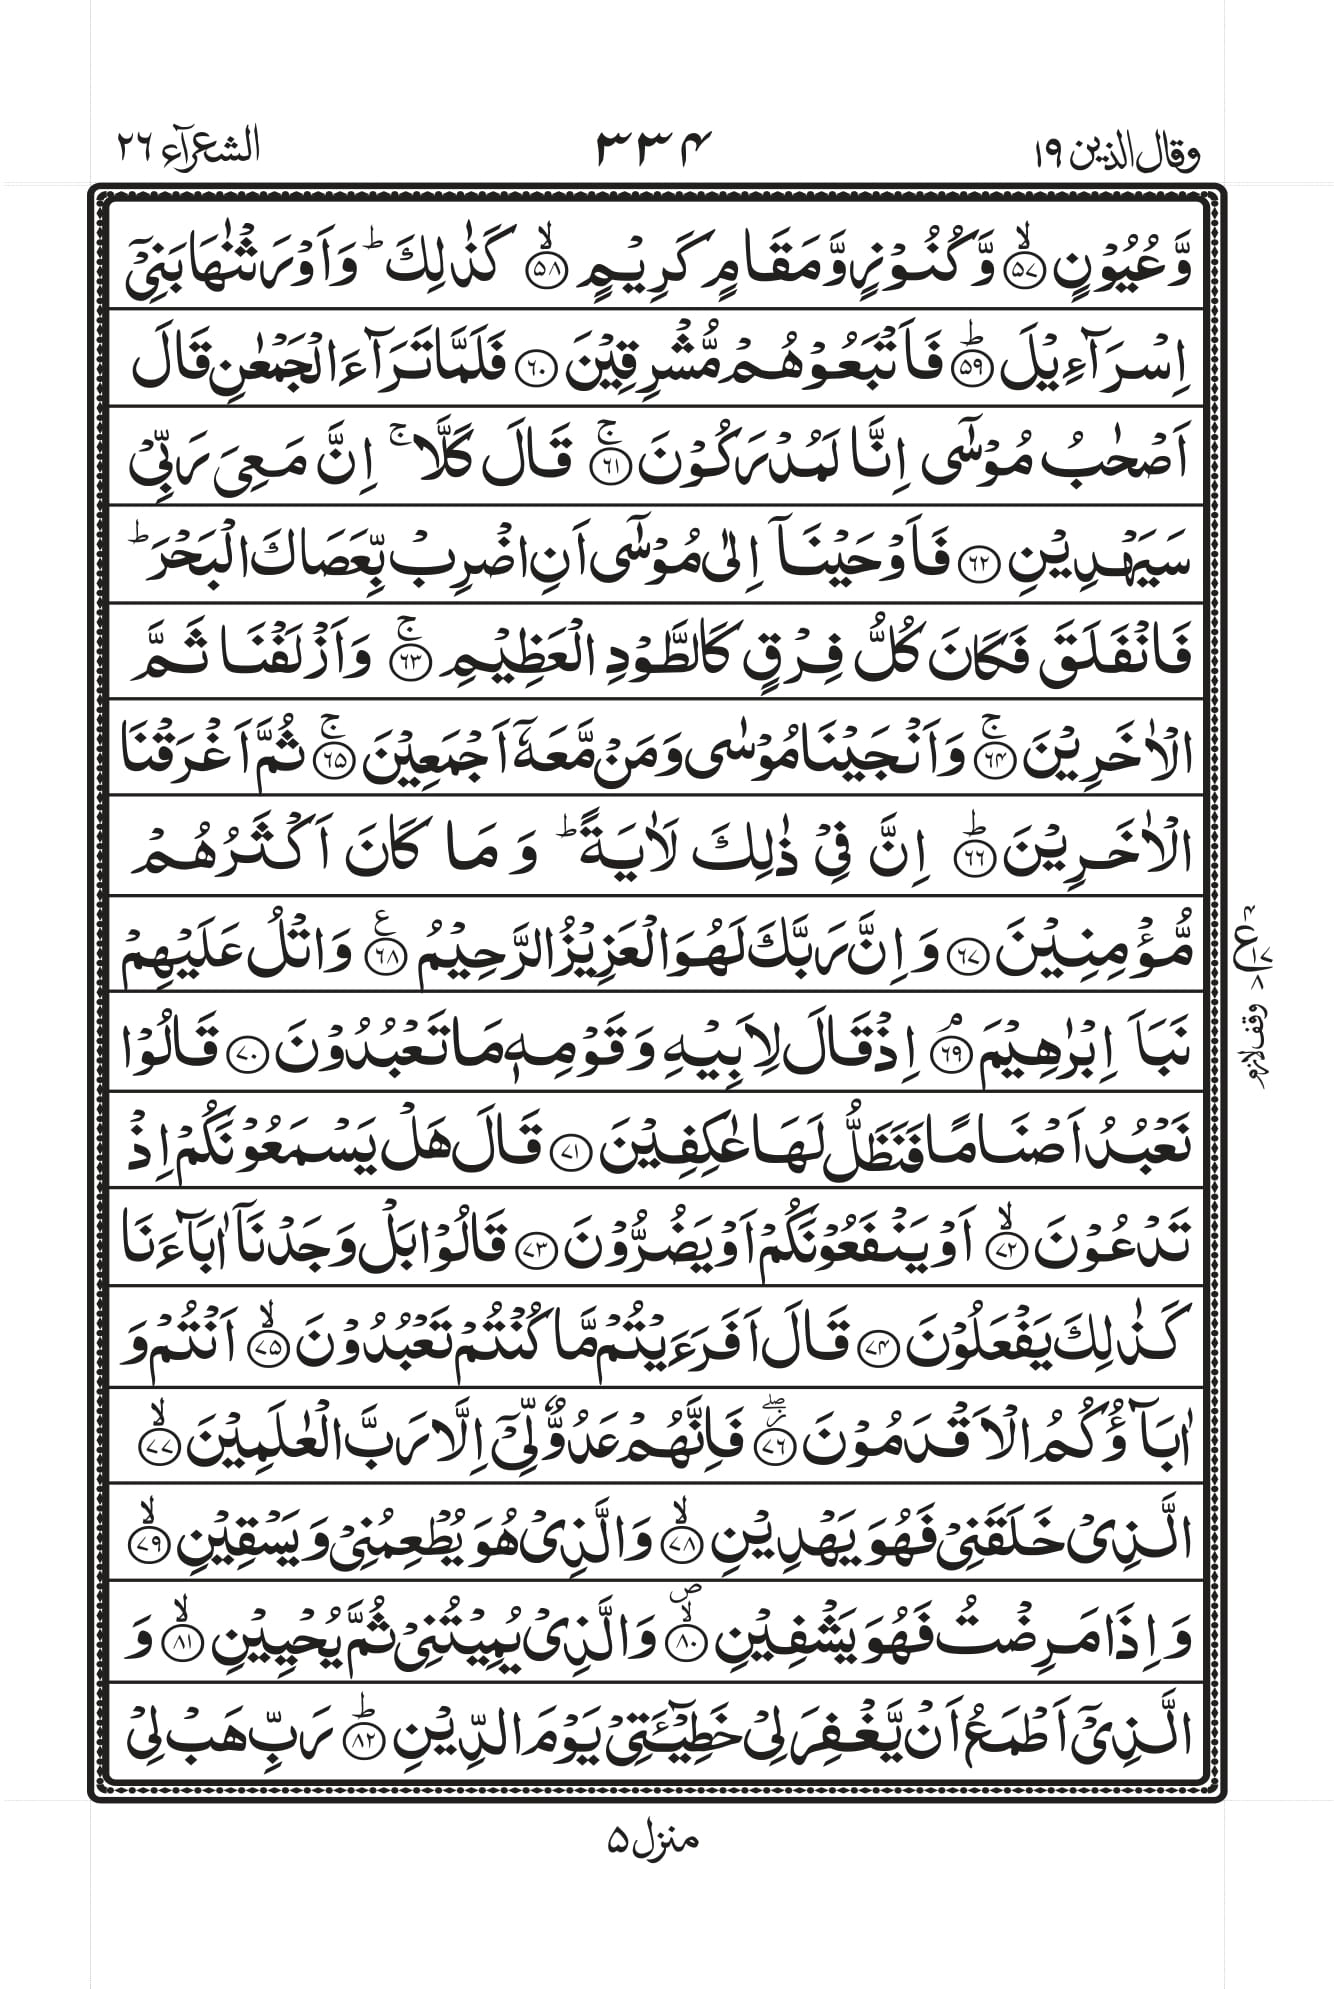 وقال الذین ۱۹
۳۳۴
الشعرآء ۲۶
وَّ عُیُوۡنٍ ﴿ۙ۵۷﴾ وَّ کُنُوۡزٍ وَّ مَقَامٍ کَرِیۡمٍ ﴿ۙ۵۸﴾ کَذٰلِکَ ؕ وَ اَوۡرَثۡنٰہَا بَنِیۡۤ
اِسۡرَآءِیۡلَ ﴿ؕ۵۹﴾ فَاَتۡبَعُوۡہُمۡ مُّشۡرِقِیۡنَ ﴿۶۰﴾ فَلَمَّا تَرَآءَ الۡجَمۡعٰنِ قَالَ
اَصۡحٰبُ مُوۡسٰۤی اِنَّا لَمُدۡرَکُوۡنَ ﴿ۚ۶۱﴾ قَالَ کَلَّا ۚ اِنَّ مَعِیَ رَبِّیۡ
سَیَہۡدِیۡنِ ﴿۶۲﴾ فَاَوۡحَیۡنَاۤ اِلٰی مُوۡسٰۤی اَنِ اضۡرِبۡ بِّعَصَاکَ الۡبَحۡرَ ؕ
فَانۡفَلَقَ فَکَانَ کُلُّ فِرۡقٍ کَالطَّوۡدِ الۡعَظِیۡمِ ﴿ۚ۶۳﴾ وَ اَزۡلَفۡنَا ثَمَّ
الۡاٰخَرِیۡنَ ﴿ۚ۶۴﴾ وَ اَنۡجَیۡنَا مُوۡسٰی وَ مَنۡ مَّعَہٗۤ اَجۡمَعِیۡنَ ﴿ۚ۶۵﴾ ثُمَّ اَغۡرَقۡنَا
الۡاٰخَرِیۡنَ ﴿ؕ۶۶﴾ اِنَّ فِیۡ ذٰلِکَ لَاٰیَۃً ؕ وَ مَا کَانَ اَکۡثَرُہُمۡ
مُّؤۡمِنِیۡنَ ﴿۶۷﴾ وَ اِنَّ رَبَّکَ لَہُوَ الۡعَزِیۡزُ الرَّحِیۡمُ ﴿٪۶۸﴾ وَ اتۡلُ عَلَیۡہِمۡ
نَبَاَ اِبۡرٰہِیۡمَ ﴿ۘ۶۹﴾ اِذۡ قَالَ لِاَبِیۡہِ وَ قَوۡمِہٖ مَا تَعۡبُدُوۡنَ ﴿۷۰﴾ قَالُوۡا
نَعۡبُدُ اَصۡنَامًا فَنَظَلُّ لَہَا عٰکِفِیۡنَ ﴿۷۱﴾ قَالَ ہَلۡ یَسۡمَعُوۡنَکُمۡ اِذۡ
تَدۡعُوۡنَ ﴿ۙ۷۲﴾ اَوۡ یَنۡفَعُوۡنَکُمۡ اَوۡ یَضُرُّوۡنَ ﴿۷۳﴾ قَالُوۡا بَلۡ وَجَدۡنَاۤ اٰبَآءَنَا
کَذٰلِکَ یَفۡعَلُوۡنَ ﴿۷۴﴾ قَالَ اَفَرَءَیۡتُمۡ مَّا کُنۡتُمۡ تَعۡبُدُوۡنَ ﴿ۙ۷۵﴾ اَنۡتُمۡ وَ
اٰبَآؤُکُمُ الۡاَقۡدَمُوۡنَ ﴿۫ۖ۷۶﴾ فَاِنَّہُمۡ عَدُوٌّ لِّیۡۤ اِلَّا رَبَّ الۡعٰلَمِیۡنَ ﴿ۙ۷۷﴾
الَّذِیۡ خَلَقَنِیۡ فَہُوَ یَہۡدِیۡنِ ﴿ۙ۷۸﴾ وَ الَّذِیۡ ہُوَ یُطۡعِمُنِیۡ وَ یَسۡقِیۡنِ ﴿ۙ۷۹﴾
وَ اِذَا مَرِضۡتُ فَہُوَ یَشۡفِیۡنِ ﴿۪ۙ۸۰﴾ وَ الَّذِیۡ یُمِیۡتُنِیۡ ثُمَّ یُحۡیِیۡنِ ﴿ۙ۸۱﴾ وَ
الَّذِیۡۤ اَطۡمَعُ اَنۡ یَّغۡفِرَ لِیۡ خَطِیۡٓـَٔتِیۡ یَوۡمَ الدِّیۡنِ ﴿ؕ۸۲﴾ رَبِّ ہَبۡ لِیۡ
ع
وقف لازم
منزل ۵